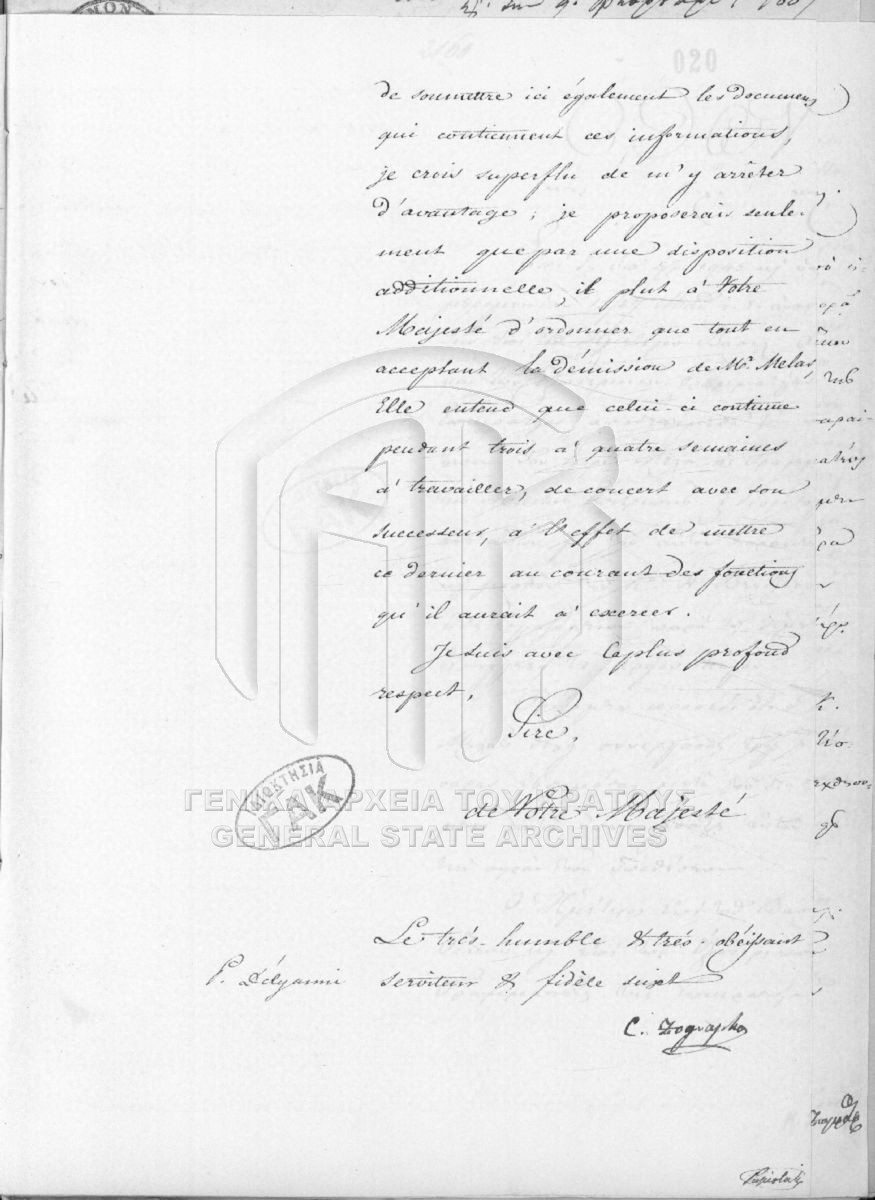 020
de soumettre ici également les documens
qui contiennent ces informations,
je crois superflu de m'y arrêter
d'avantage; je proposerais seule-
ment que par une disposition
additionnelle, il plut à Votre
Majesté d'ordonner que tout en
acceptant la démission de Mr. Melas,
Elle entend que celui-ci continue
pendant trois à quatre semaines
à travailler, de concert avec son
successeur, à l'effet de mettre
ce dernier au courant des fonctions
qu'il aurait à exercer.
Je suis avec le plus profond
respect,
Sire,
de Votre Majesté
Le très-humble & très-obéissant
serviteur & fidèle sujet
P. Délyanni
C. Zographo
ΙΔΙΟΚΤΗΣΙΑ
ΓΑΚ
ΓΕΝΙΚΑ ΑΡΧΕΙΑ ΤΟΥ ΚΡΑΤΟΥΣ
GENERAL STATE ARCHIVES